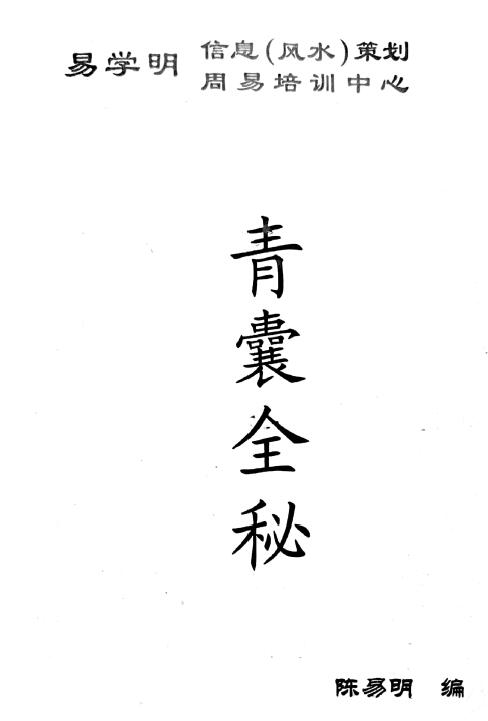 易学明 信息(风水)策划
周易培训中心
青囊全秘
陈易明 编